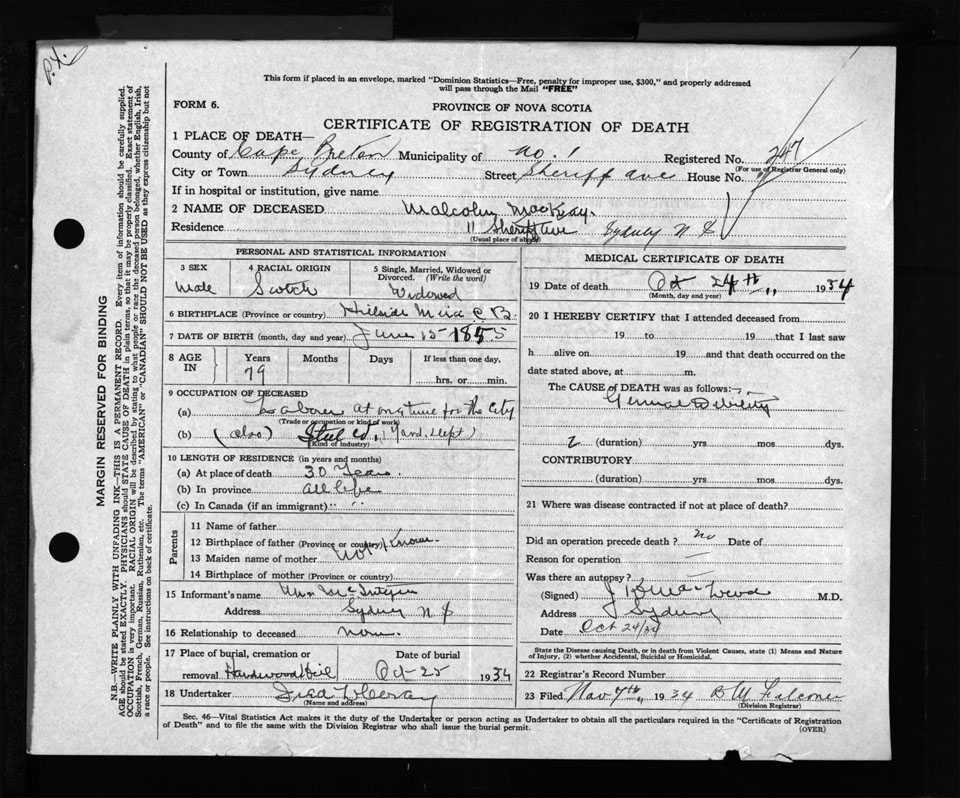 P.X.
This form if placed in an envelope, marked "Dominion Statistics—Free, penalty for improper use, $300," and properly addressed
will pass through the Mail "FREE"
FORM 6.
PROVINCE OF NOVA SCOTIA
CERTIFICATE OF REGISTRATION OF DEATH
1 PLACE OF DEATH—
County of Cape Breton Municipality of No. 1 Registered No. 247
(For use of Registrar General only)
City or Town Sydney Street Sheriff ave House No.
If in hospital or institution, give name
2 NAME OF DECEASED Malcolm MacKay.
Residence 11 Sheriff ave Sydney N S
(Usual place of abode)
PERSONAL AND STATISTICAL INFORMATION
3 SEX Male
4 RACIAL ORIGIN Scotch
5 Single, Married, Widowed or Divorced. (Write the word) Widowed
6 BIRTHPLACE (Province or country) Hillside Mira C B.
7 DATE OF BIRTH (month, day and year) June 15 1855
8 AGE IN Years 79 Months Days If less than one day, hrs. or min.
9 OCCUPATION OF DECEASED
(a) at any time for the City
(Trade or occupation or kind of work)
(b) (also) Steel Co., (Yard Dept)
(Kind of industry)
10 LENGTH OF RESIDENCE (in years and months)
(a) At place of death 30 Years.
(b) In province all life
(c) In Canada (if an immigrant)
Parents
11 Name of father
12 Birthplace of father (Province or country) Not Known.
13 Maiden name of mother
14 Birthplace of mother (Province or country)
15 Informant's name Mrs McIntyre
Address Sydney N S
16 Relationship to deceased none.
17 Place of burial, cremation or removal Hardwood Hill
Date of burial Oct 25 1934
18 Undertaker Fred
(Name and address)
MEDICAL CERTIFICATE OF DEATH
19 Date of death Oct 24th, 1934
(Month, day and year)
20 I HEREBY CERTIFY that I attended deceased from
19 to 19 that I last saw
h alive on 19 and that death occurred on
date stated above, at m.
The CAUSE OF DEATH was as follows:—
General Debility
2 (duration) yrs. mos. dys.
CONTRIBUTORY
(duration) yrs. mos. dys.
21 Where was disease contracted if not at place of death?
Did an operation precede death? no Date of
Reason for operation —
Was there an autopsy?
(Signed) M.D.
Address Sydney
Date Oct 24/34
State the Disease causing Death, or in death from Violent Causes, state (1) Means and
Nature of Injury, (2) whether Accidental, Suicidal or Homicidal.
22 Registrar's Record Number
23 Filed Nov 7th, 1934 B M Falconer
(Division Registrar)
Sec. 46—Vital Statistics Act makes it the duty of the Undertaker or person acting as Undertaker to obtain all the particulars required in the "Certificate of Registration
of Death" and to file the same with the Division Registrar who shall issue the burial permit.
(OVER)
MARGIN RESERVED FOR BINDING
N.B.—WRITE PLAINLY WITH UNFADING INK—THIS IS A PERMANENT RECORD. Every item of information should be carefully supplied.
AGE should be stated EXACTLY. PHYSICIANS should STATE CAUSE OF DEATH in plain terms, so that it may be properly classified. Exact statement of
OCCUPATION is very important. RACIAL ORIGIN will be described by stating to what people or race the deceased person belonged, whether English, Irish,
Scottish, French, German, Russian, Ruthenian, etc. The terms "AMERICAN" or "CANADIAN" SHOULD NOT BE USED as they express citizenship but not
a race or people. See instructions on back of certificate.